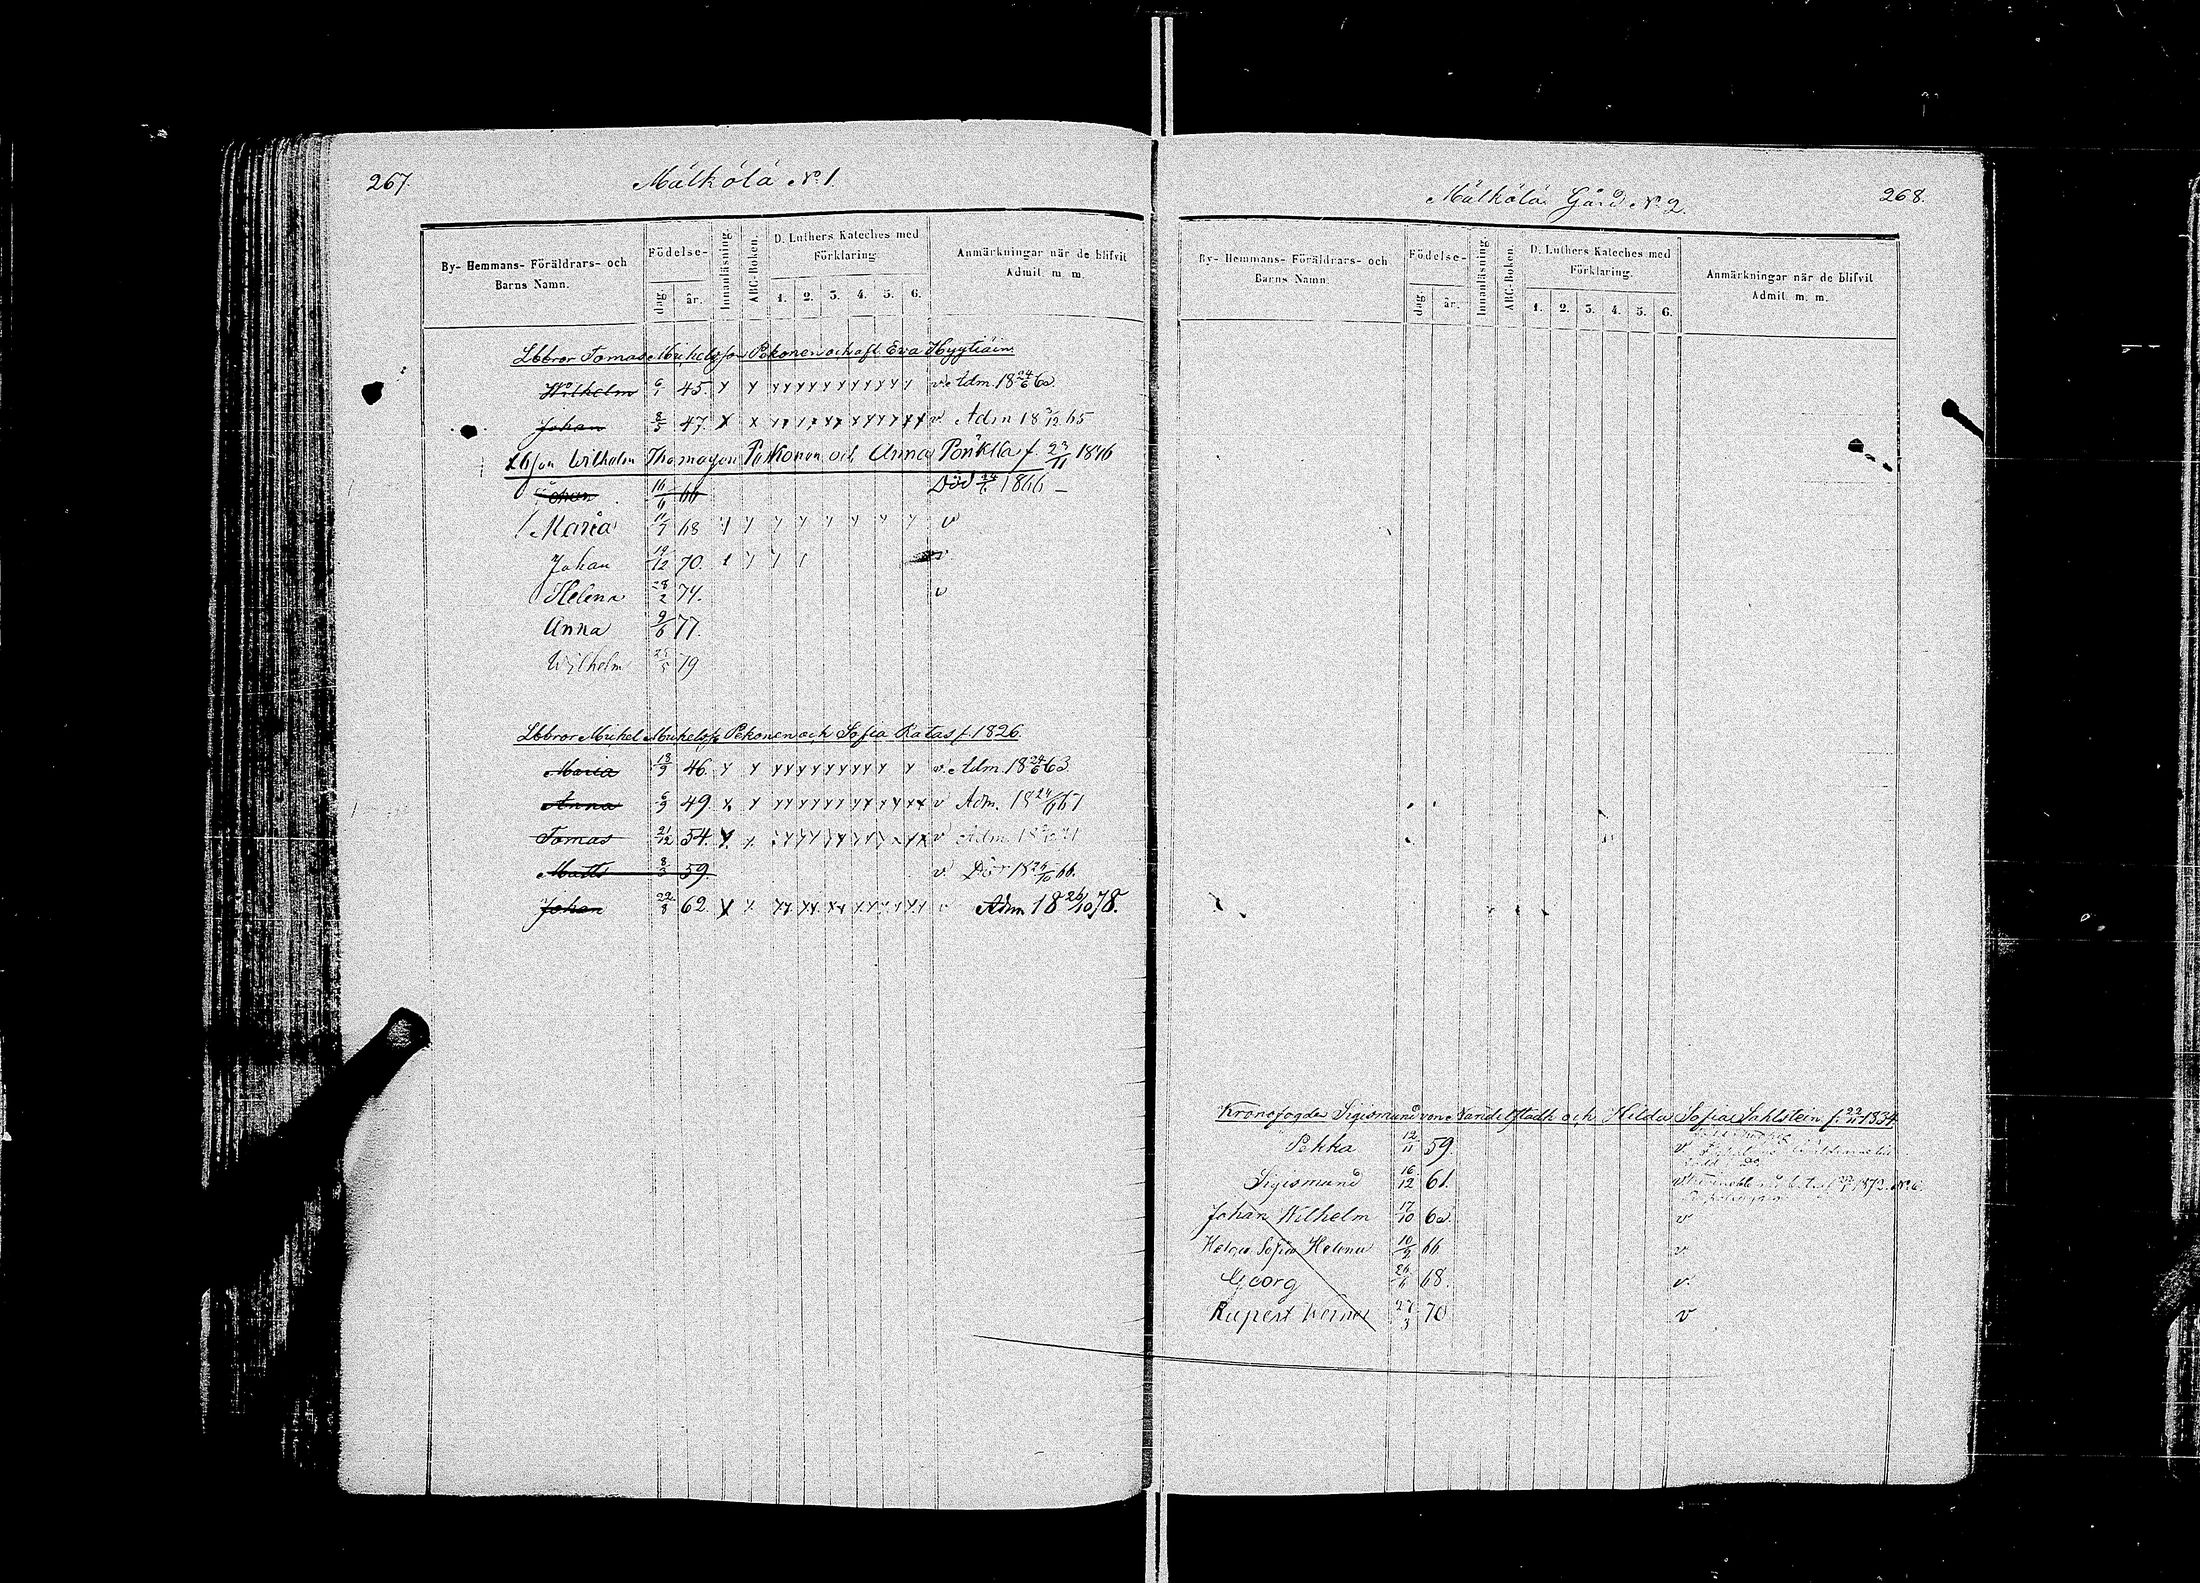 267.
Mälkölä No 1.
By- Hemmans- Föräldrars- och Barns Namn.
Födelse-
dag
år.
Innanläsning.
ABC-Boken.
D. Luthers Kateches med Förklaring
1. 2. 3. 4. 5. 6.
Anmärkningar när de blifvit Admit. m. m.
Lbbror Tomas Michelsson Pekonen och afl. Eva Hyytiäin
Wilhelm 6/1 45. v. Adm. 18 24/6 62.
Johan 8/5 47. v Adm 18 /12 65
Lbson Wilhelm Thomasson Pekkonen och Anna f. 23/11 1846
Johan 16/6 66 Död 24/6 1866 –
Maria 11/7 68 v
Johan 19/12 70. v
Helena 28/2 74. v
Anna 9/6 77.
Wilhelm 25/5 79
Lbbror Michel Michelss. Pekonen och Sofia Ratas f. 1826.
Maria 18/9 46. v. Adm. 18 24/6 63
Anna 6/9 49. v Adm. 18 24/6 67
Tomas 21/12 54. v Adm. 18 71
Matts 8/3 59. v Dör 18 26/10 66.
Johan 22/8 62. v Adm 18 26/10 78.
268.
Mälkölä Gård No 2.
By- Hemmans- Föräldrars- och Barns Namn.
Födelse-
dag
år.
Innanläsning
ABC-Boken.
D. Luthers Kateches med Förklaring.
1. 2. 3. 4. 5. 6.
Anmärkningar när de blifvit Admit. m. m.
Kronofogden Sigismund von Nandelstadh och Hilda Sofia Sahlstein f. 22/11 1834
Pekka 12/11 59. v
Sigismund 16/12 61. v 1872. No 6.
Johan Wilhelm 17/10 62. v
Helga Sofia Helena 10/2 66 v
Georg 26/6 68. v.
Rupert Werner 27/3 70 v